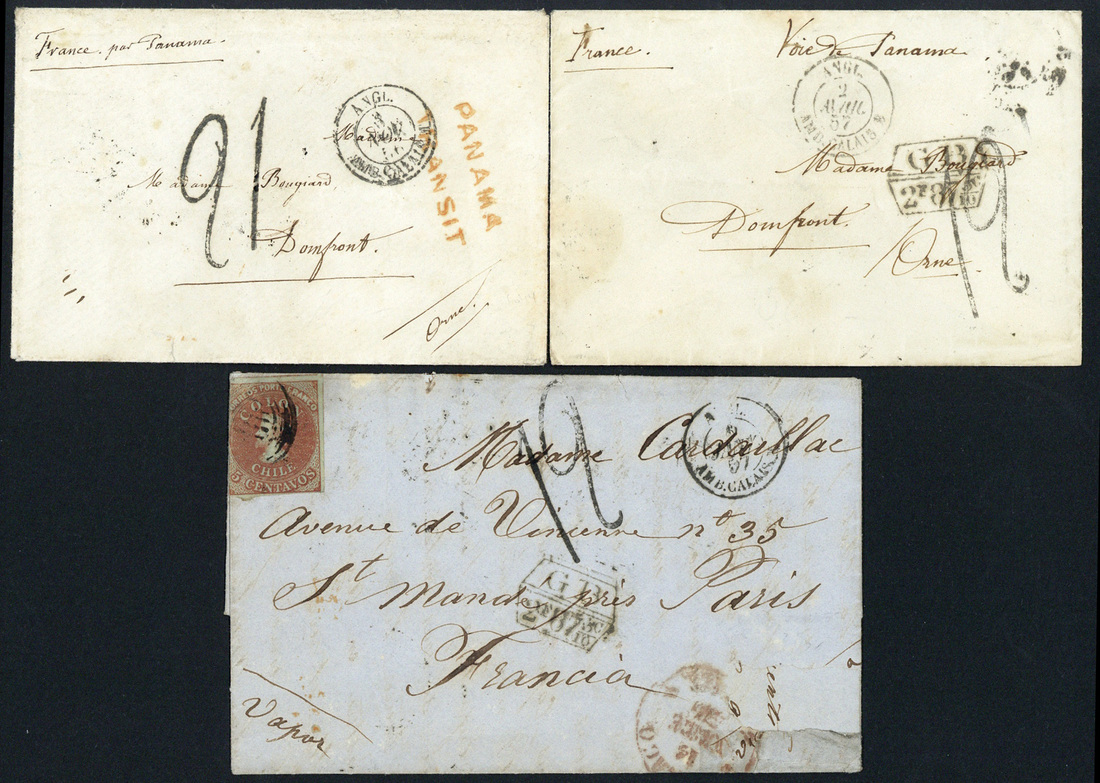 France. par Panama.
21
ANGL.
AMB. CALAIS
PANAMA
TRANSIT
Madame Bougiard
Domfront.
Orne.
France. Voie de Panama
ANGL.
2
57
AMB. CALAIS B
GB
Madame Bougiard
Domfront.
Orne
12
PORTE FRANCO
COLON
CHILE
5 CENTAVOS
12
AMB. CALAIS
57
Madame Cardaillac
Avenue de Vincenne nº 35
St Mandé près Paris
GB
Francia
Vapor